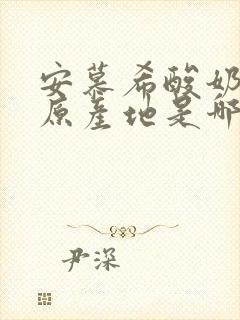 安慕希酸奶
原产地是哪
尹深